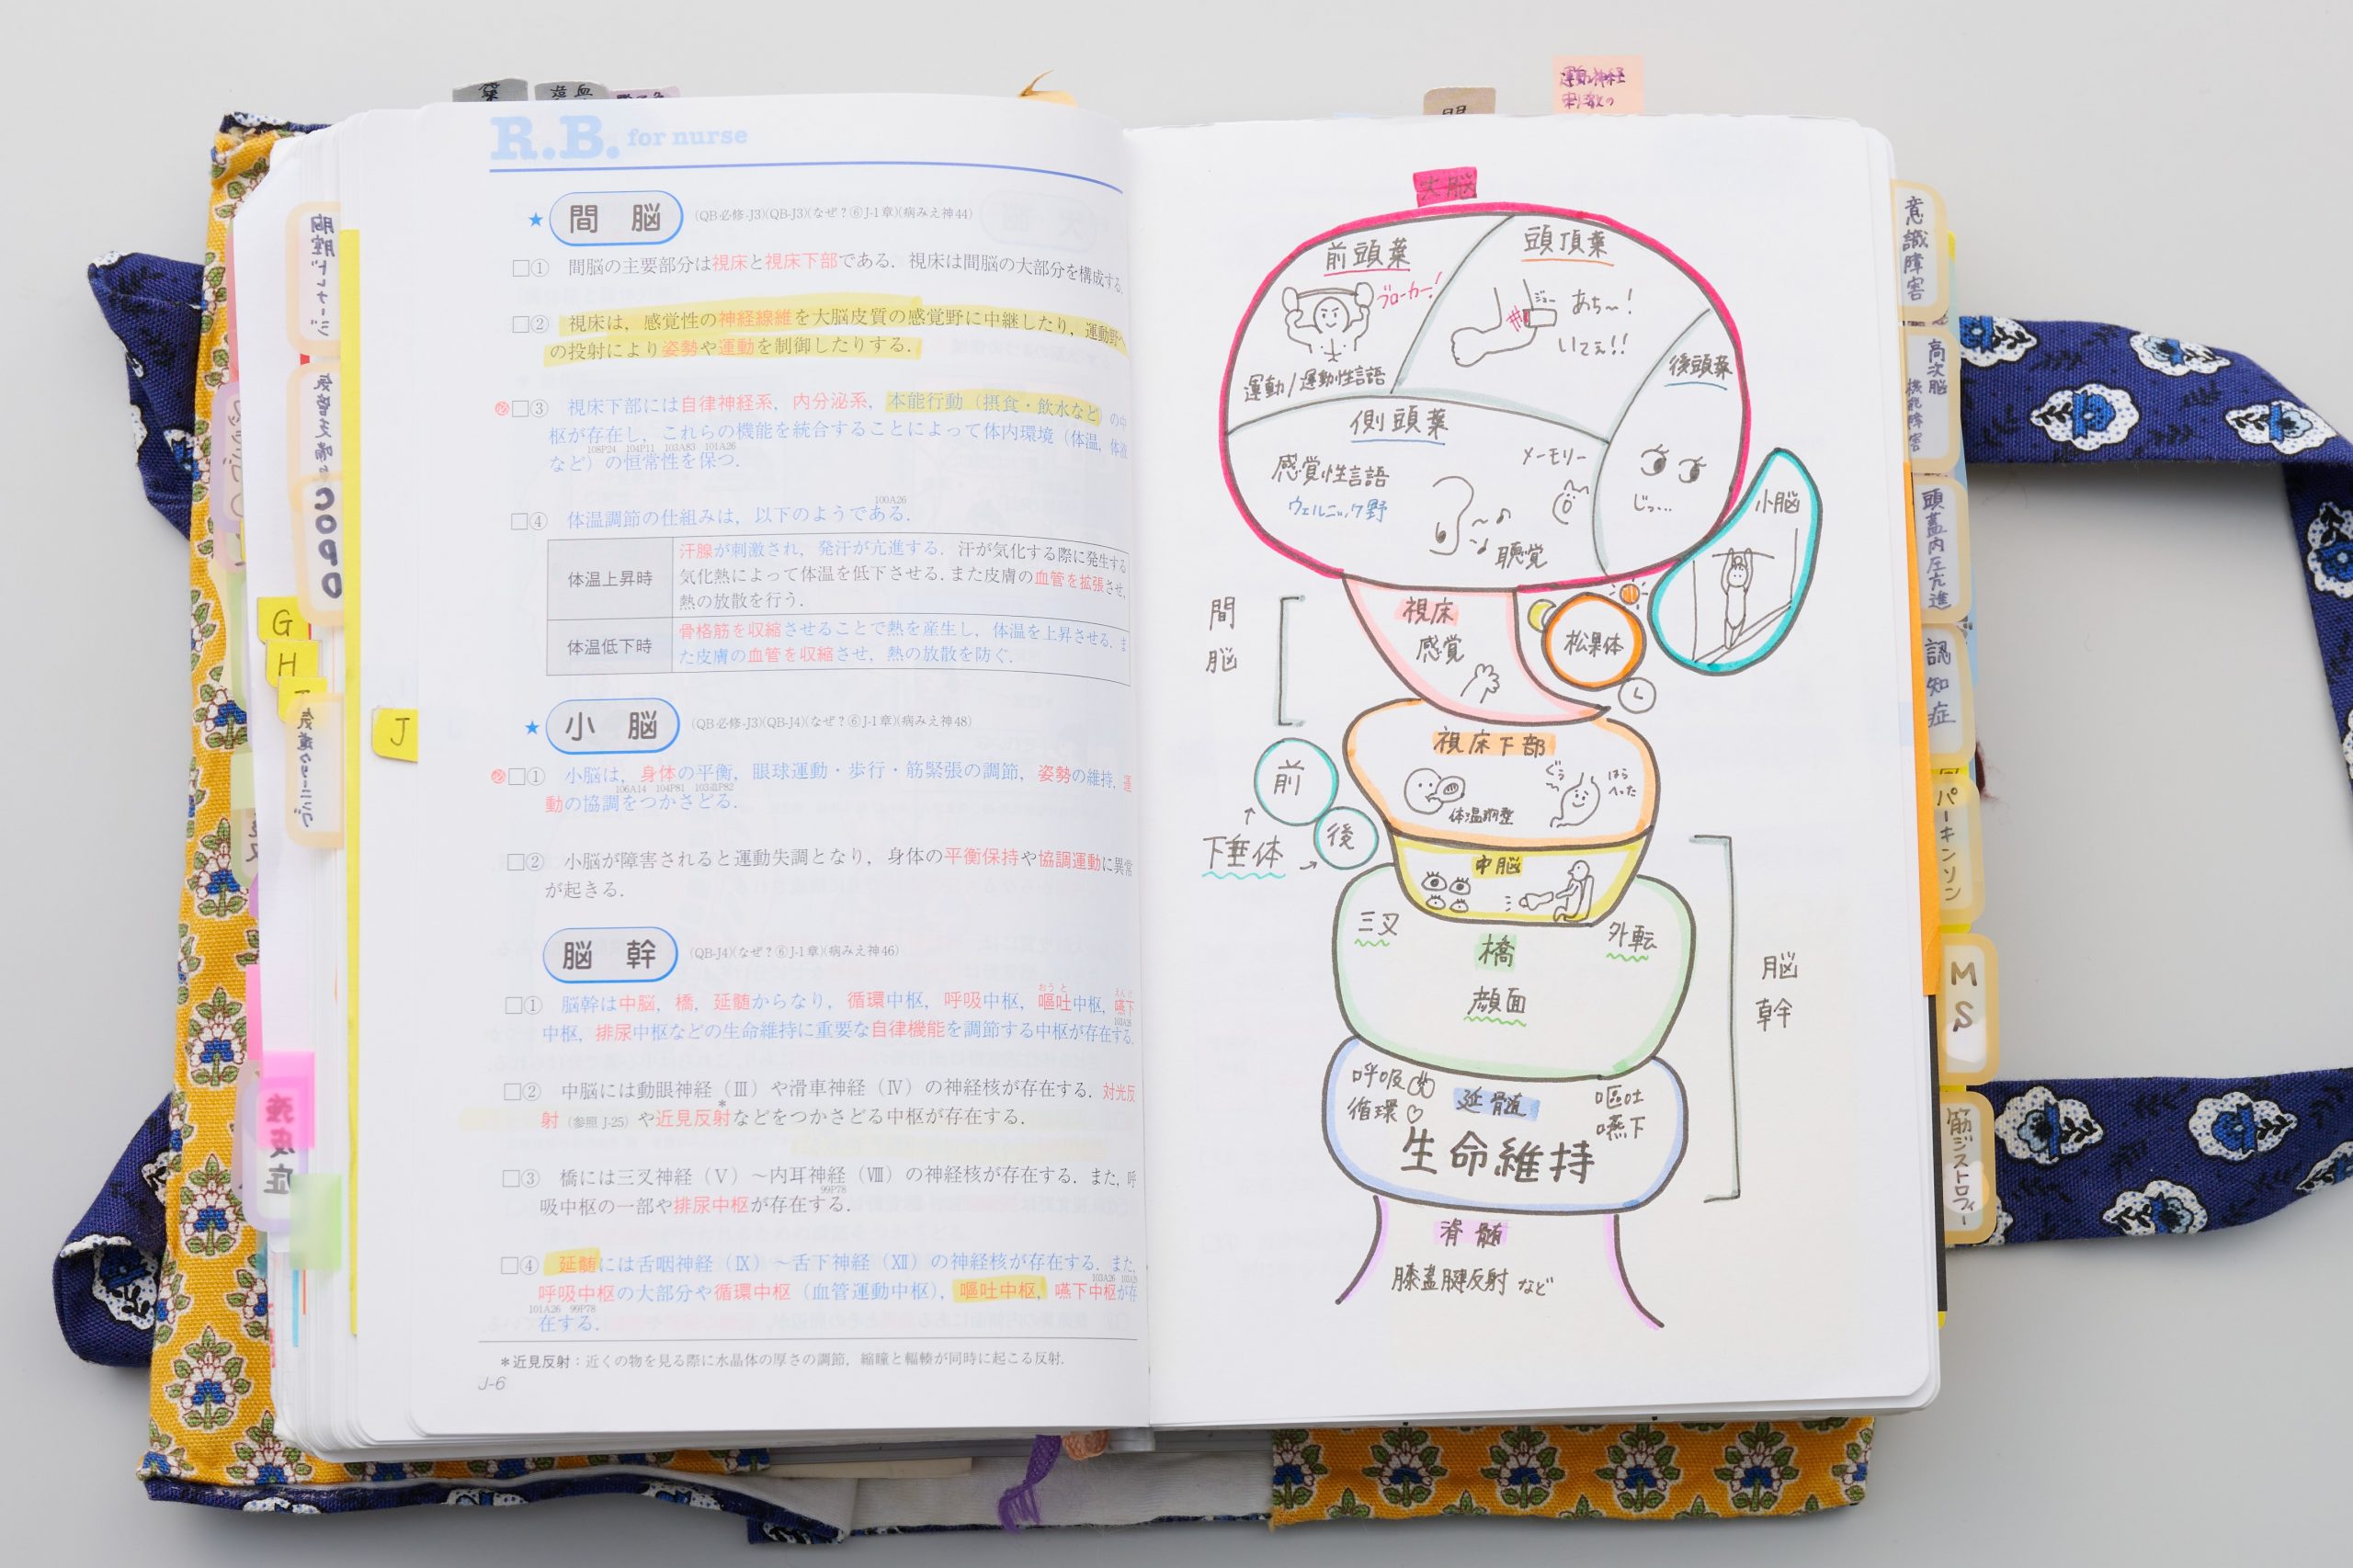 R.B. for nurse
★ 間脳 (QB必修-J3)(QB-J3)(なぜ?⑥J-1章)(病みえ神44)
□① 間脳の主要部分は視床と視床下部である．視床は間脳の大部分を構成する．
□② 視床は，感覚性の神経線維を大脳皮質の感覚野に中継したり，運動野へ
の投射により姿勢や運動を制御したりする．
□③ 視床下部には自律神経系，内分泌系，本能行動（摂食・飲水など）の中
枢が存在し，これらの機能を統合することによって体内環境（体温，体液
108P24 104P11 103A83 101A26
など）の恒常性を保つ．
100A26
□④ 体温調節の仕組みは，以下のようである．
体温上昇時
汗腺が刺激され，発汗が亢進する．汗が気化する際に発生する
気化熱によって体温を低下させる．また皮膚の血管を拡張させ，
熱の放散を行う．
体温低下時
骨格筋を収縮させることで熱を産生し，体温を上昇させる．ま
た皮膚の血管を収縮させ，熱の放散を防ぐ．
★ 小脳 (QB必修-J3)(QB-J4)(なぜ?⑥J-1章)(病みえ神48)
□① 小脳は，身体の平衡，眼球運動・歩行・筋緊張の調節，姿勢の維持，運
106A14 104P81 103追P82
動の協調をつかさどる．
□② 小脳が障害されると運動失調となり，身体の平衡保持や協調運動に異常
が起きる．
脳幹 (QB-J4)(なぜ?⑥J-1章)(病みえ神46)
おうと えんげ
□① 脳幹は中脳，橋，延髄からなり，循環中枢，呼吸中枢，嘔吐中枢，嚥下
中枢，排尿中枢などの生命維持に重要な自律機能を調節する中枢が存在する．
□② 中脳には動眼神経（Ⅲ）や滑車神経（Ⅳ）の神経核が存在する．対光反
射（参照 J-25）や近見反射*などをつかさどる中枢が存在する．
□③ 橋には三叉神経（Ⅴ）～内耳神経（Ⅷ）の神経核が存在する．また，呼
99P78
吸中枢の一部や排尿中枢が存在する．
□④ 延髄には舌咽神経（Ⅸ）～舌下神経（Ⅻ）の神経核が存在する．また，
呼吸中枢の大部分や循環中枢（血管運動中枢），嘔吐中枢，嚥下中枢が存
101A26 99P78
在する．
＊近見反射：近くの物を見る際に水晶体の厚さの調節，縮瞳と輻輳が同時に起こる反射．
J-6
G
H
J
COPD
大脳
前頭葉
ブローカー!
運動/運動性言語
頭頂葉
ジュー
あち〜!
いてぇ!!
後頭葉
じっ…
側頭葉
感覚性言語
ウェルニッケ野
メーモリー
聴覚
小脳
間脳
視床
感覚
松果体
視床下部
体温調整
ぐぅ
はらへった
前
後
下垂体
中脳
三叉
橋
外転
顔面
脳幹
呼吸
循環
延髄
嘔吐
嚥下
生命維持
脊髄
膝蓋腱反射 など
意識障害
高次脳機能障害
頭蓋内圧亢進
認知症
パーキンソン
MS
筋ジストロフィー